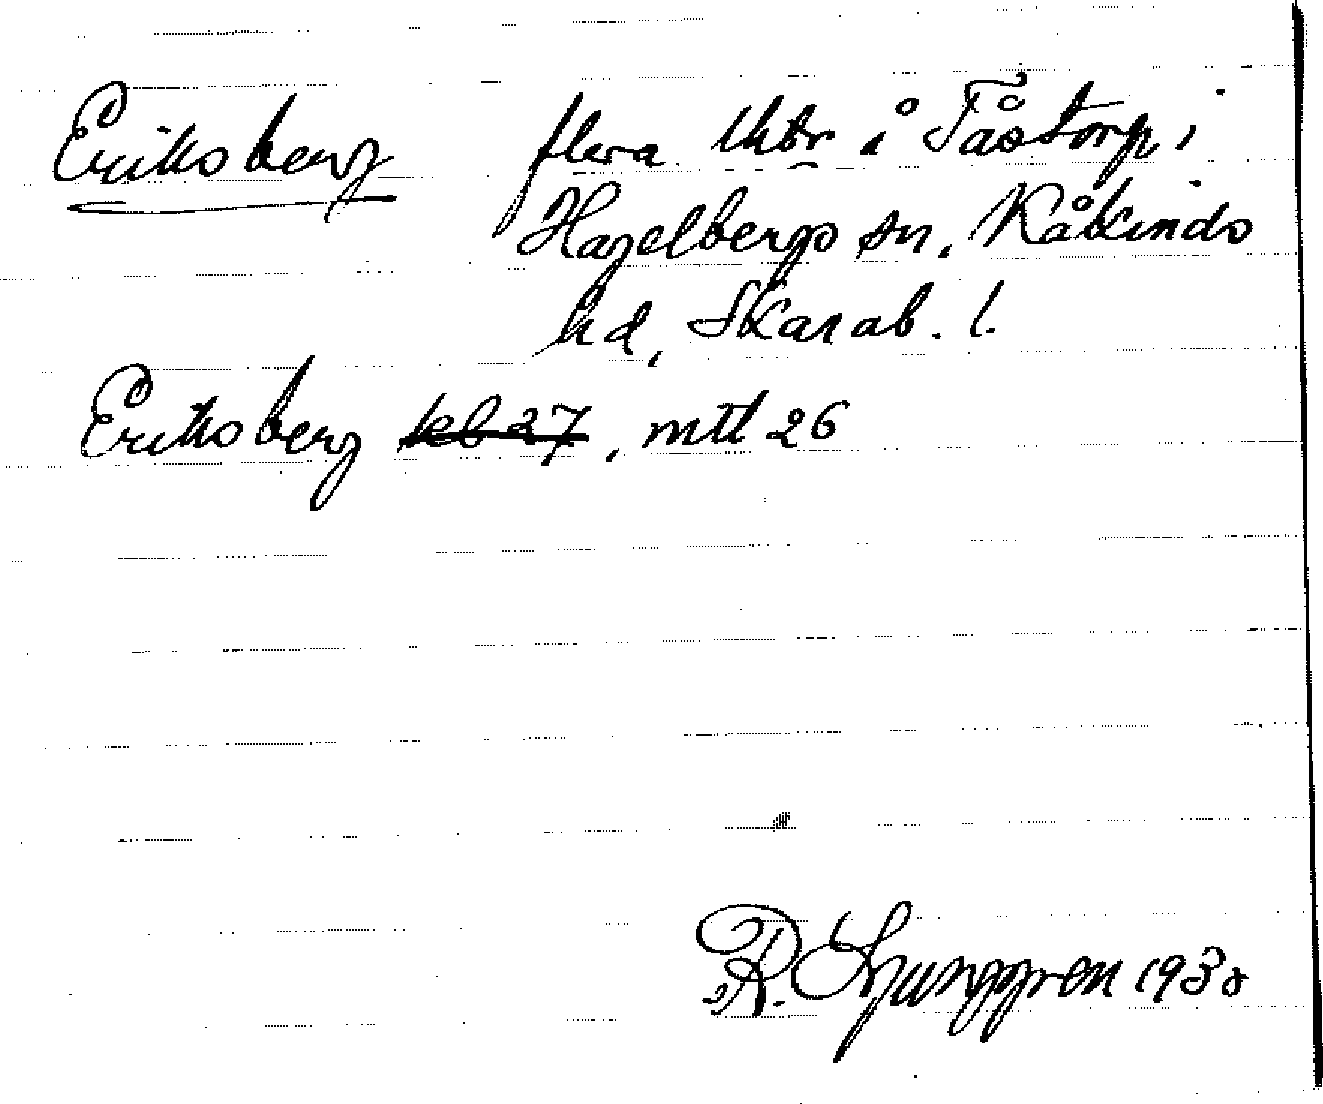 Eriksberg flera lhtr å Tåstorp i
Hagelbergs sn, Kåkinds
hd, Skarab. l.
Eriksberg kb 27, mtl 26
R. Ljunggren 1938